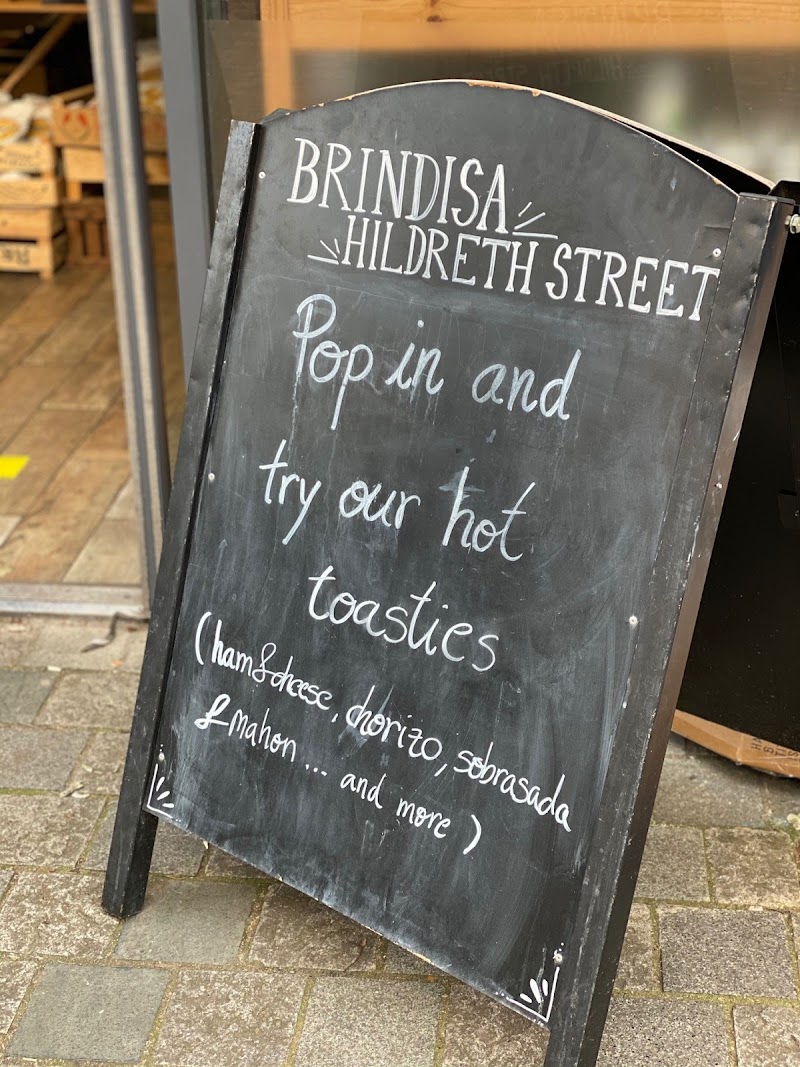 BRINDISA
HILDRETH STREET
Pop in and
try our hot
toasties
(ham & cheese, chorizo, sobrasada
& mahon ... and more )